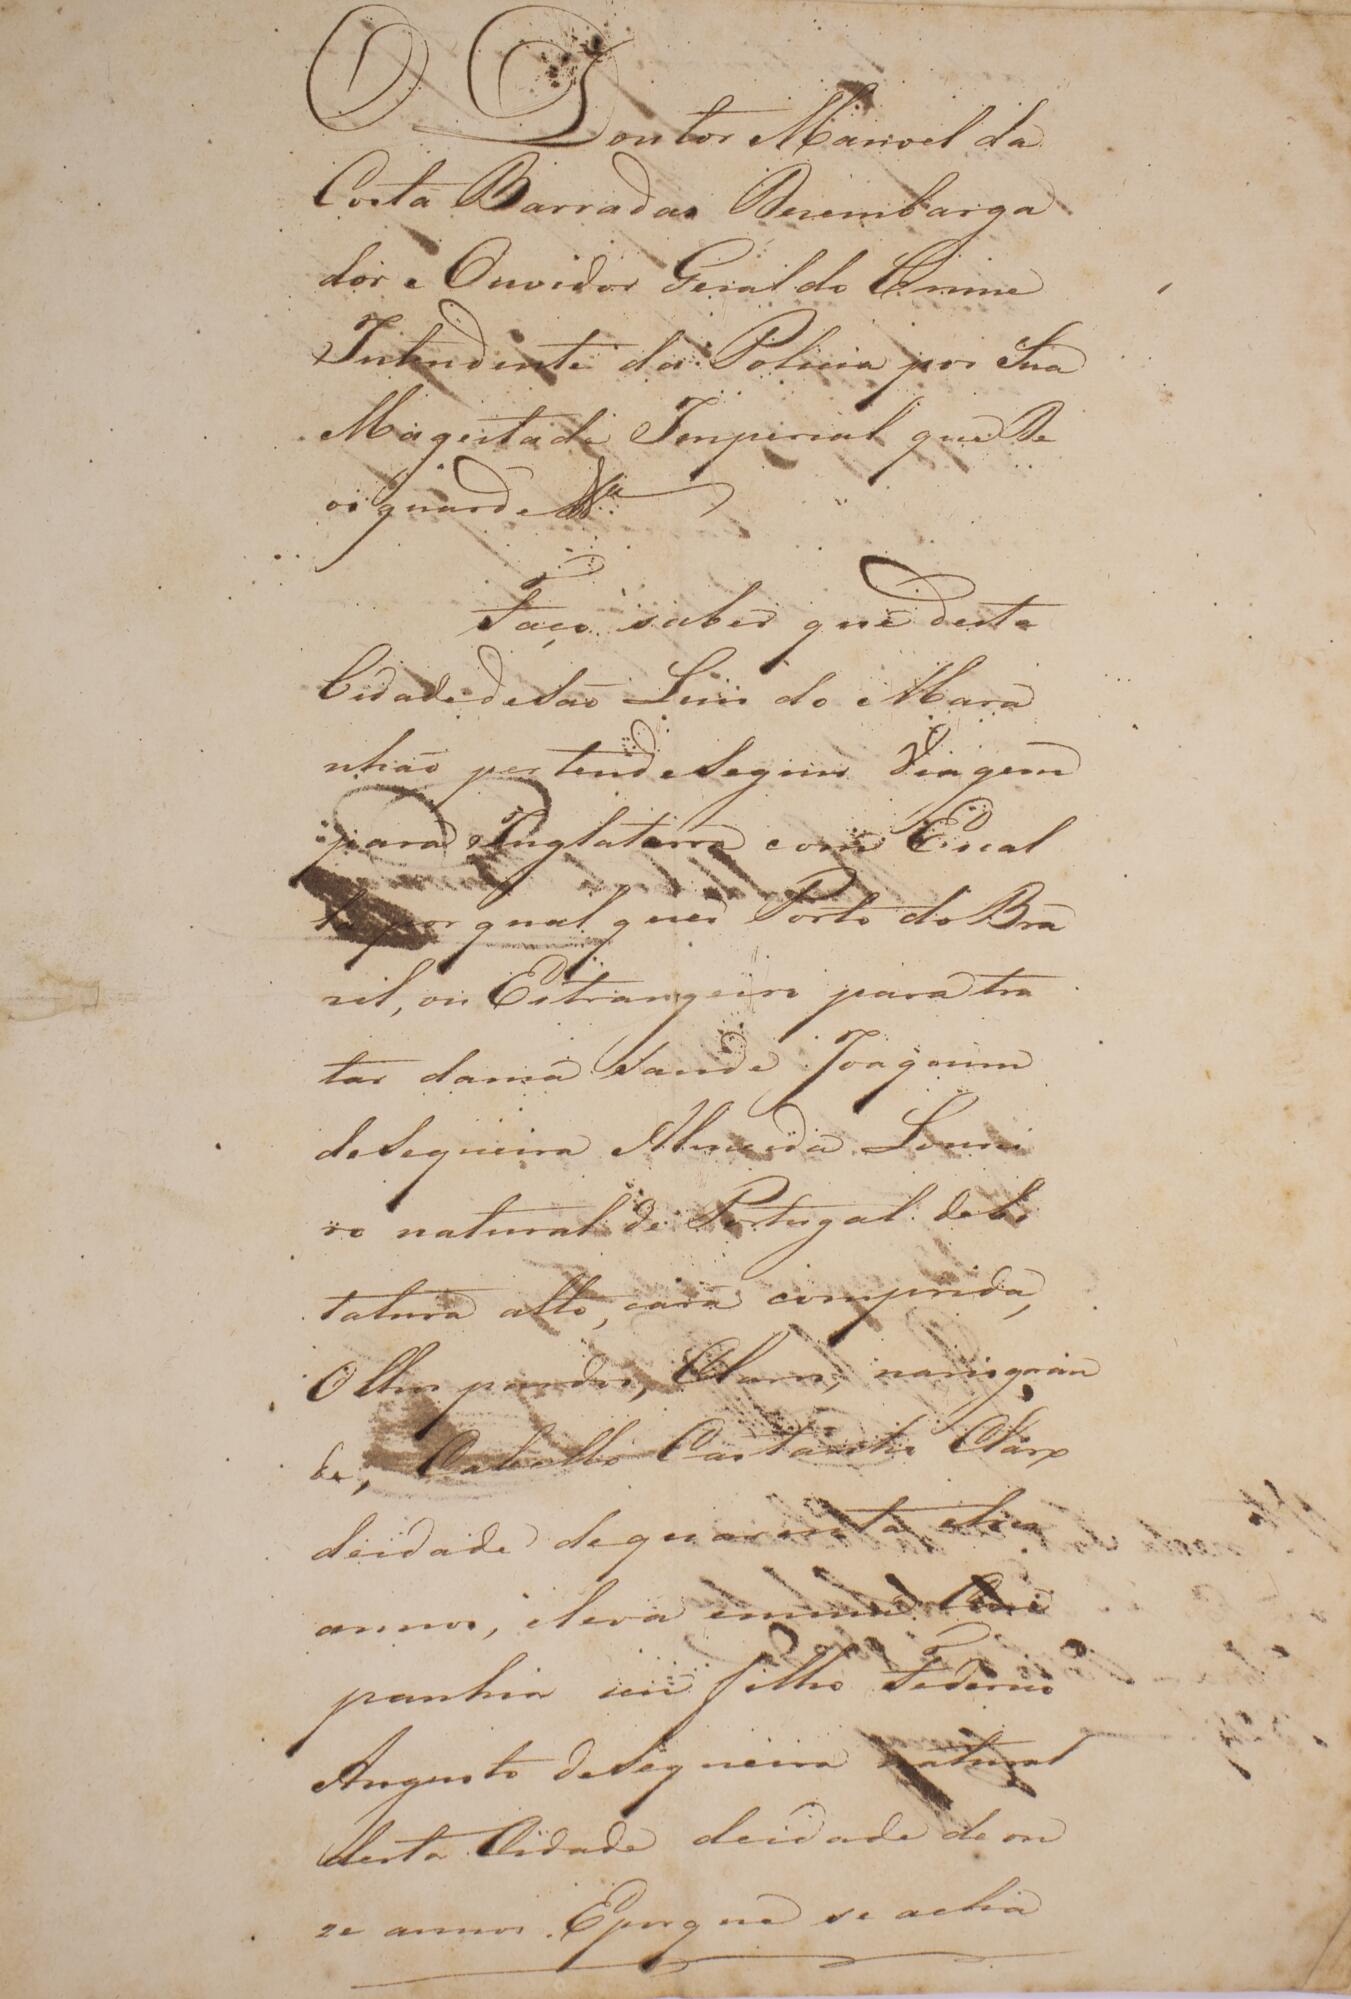 O Doutor Manoel da
Costa Barradas Desembarga
dor e Ouvidor Geral do Crime
Intendente da Policia por Sua
Magestade Imperial que De
os guarde &a
Faço saber que desta
Cidade de São Luis do Mara
nhão pertende seguir Viagem
para Inglaterra com Escal
la por qual quer Porto do Bra
zil, ou Estrangeiro para tra
tar da sua saude Joaquim
de Sequeira Almeida Lourei
ro natural de Portugal de Es
tatura alto, cara comprida,
Olhos pardos, Claros, naris gran
de, Cabello Castanho Claro
de idade de quarenta e tres
annos, e leva em sua Com
panhia seu filho Federico
Augusto de Sequeira natural
desta Cidade de idade de on
ze annos. E por que se acha